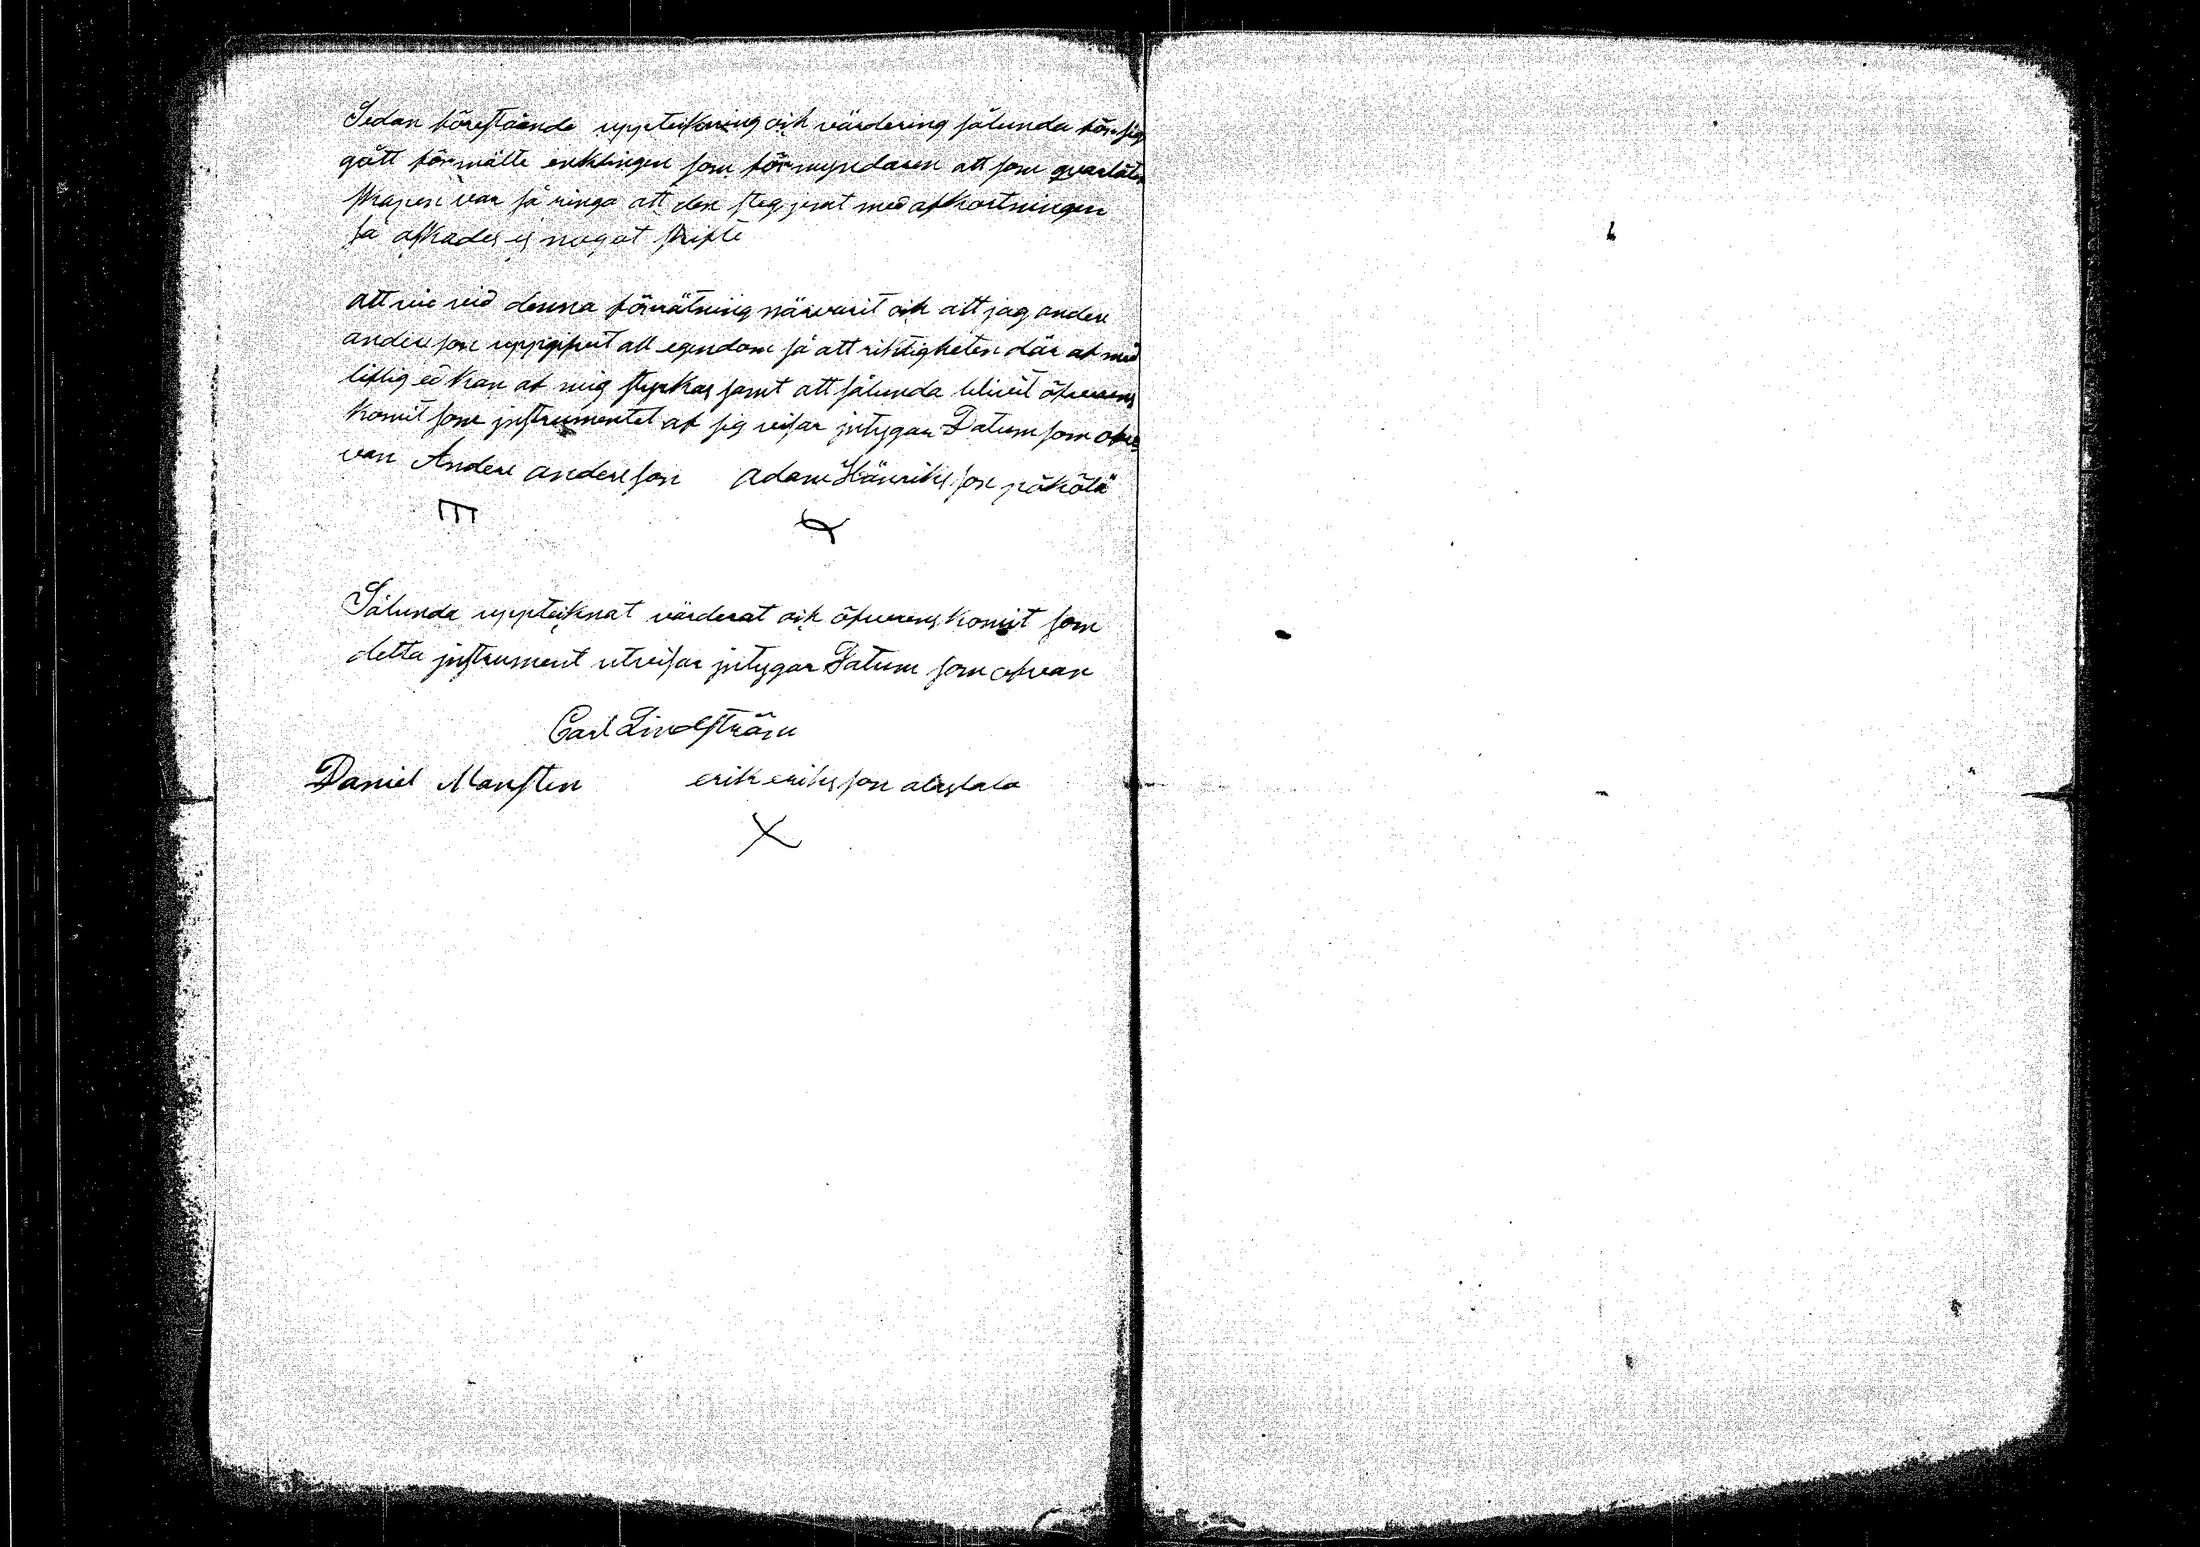 Sedan föreståande uppteikning oik värdering sålunda för sig
gått förmälte enklingen som förmyndaren att som quarlåten
skapen var så ringa att den steg jemt med afkortningen
så askades ej nogot skifte
att vie vid denna förrätning närvarit oik att jag anders
anders son uppgifvit all egendom så att riktigheten där af med
liflig ed kan af mig styrkas samt att sålunda blivit öfverens
komit som jnstrumentet af sig visar jntygar Datum som ofva
van Anders anders son adam Hänriks son påkölä
Sålunda uppteiknat värderat oik öfverens komit som
detta jnstrument utvisar jntygar Datum som ofvan
Carl Lindström
Daniel Mansten erik eriks son alastalo